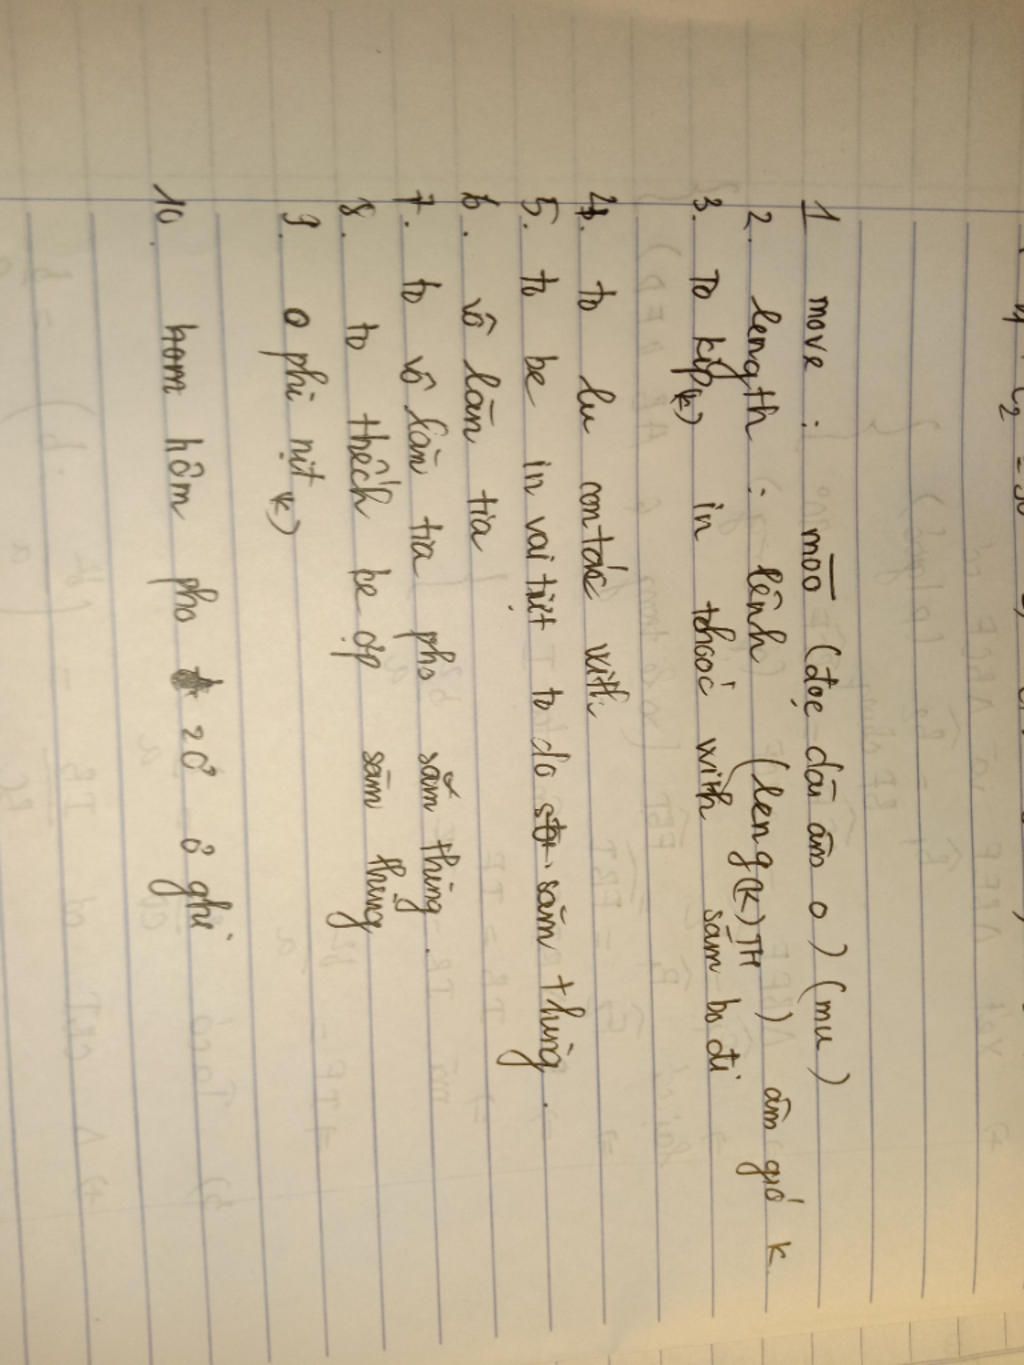 1 move : mōō (đọc dài âm o) (mu)
2. length : lênh (leng(k)TH) âm gió k
3. To kíp(k) in thaoc with săm bo đi
4. to lu contác with
5. to be in vai tiệt to do săm thing.
6. vô lăn tia
7. to vô lăn tia pho săm thing.
8. to thếch ke ợp săm thing
9. o phi nịt (k)
10. hom hôm pho zơ ô ghi